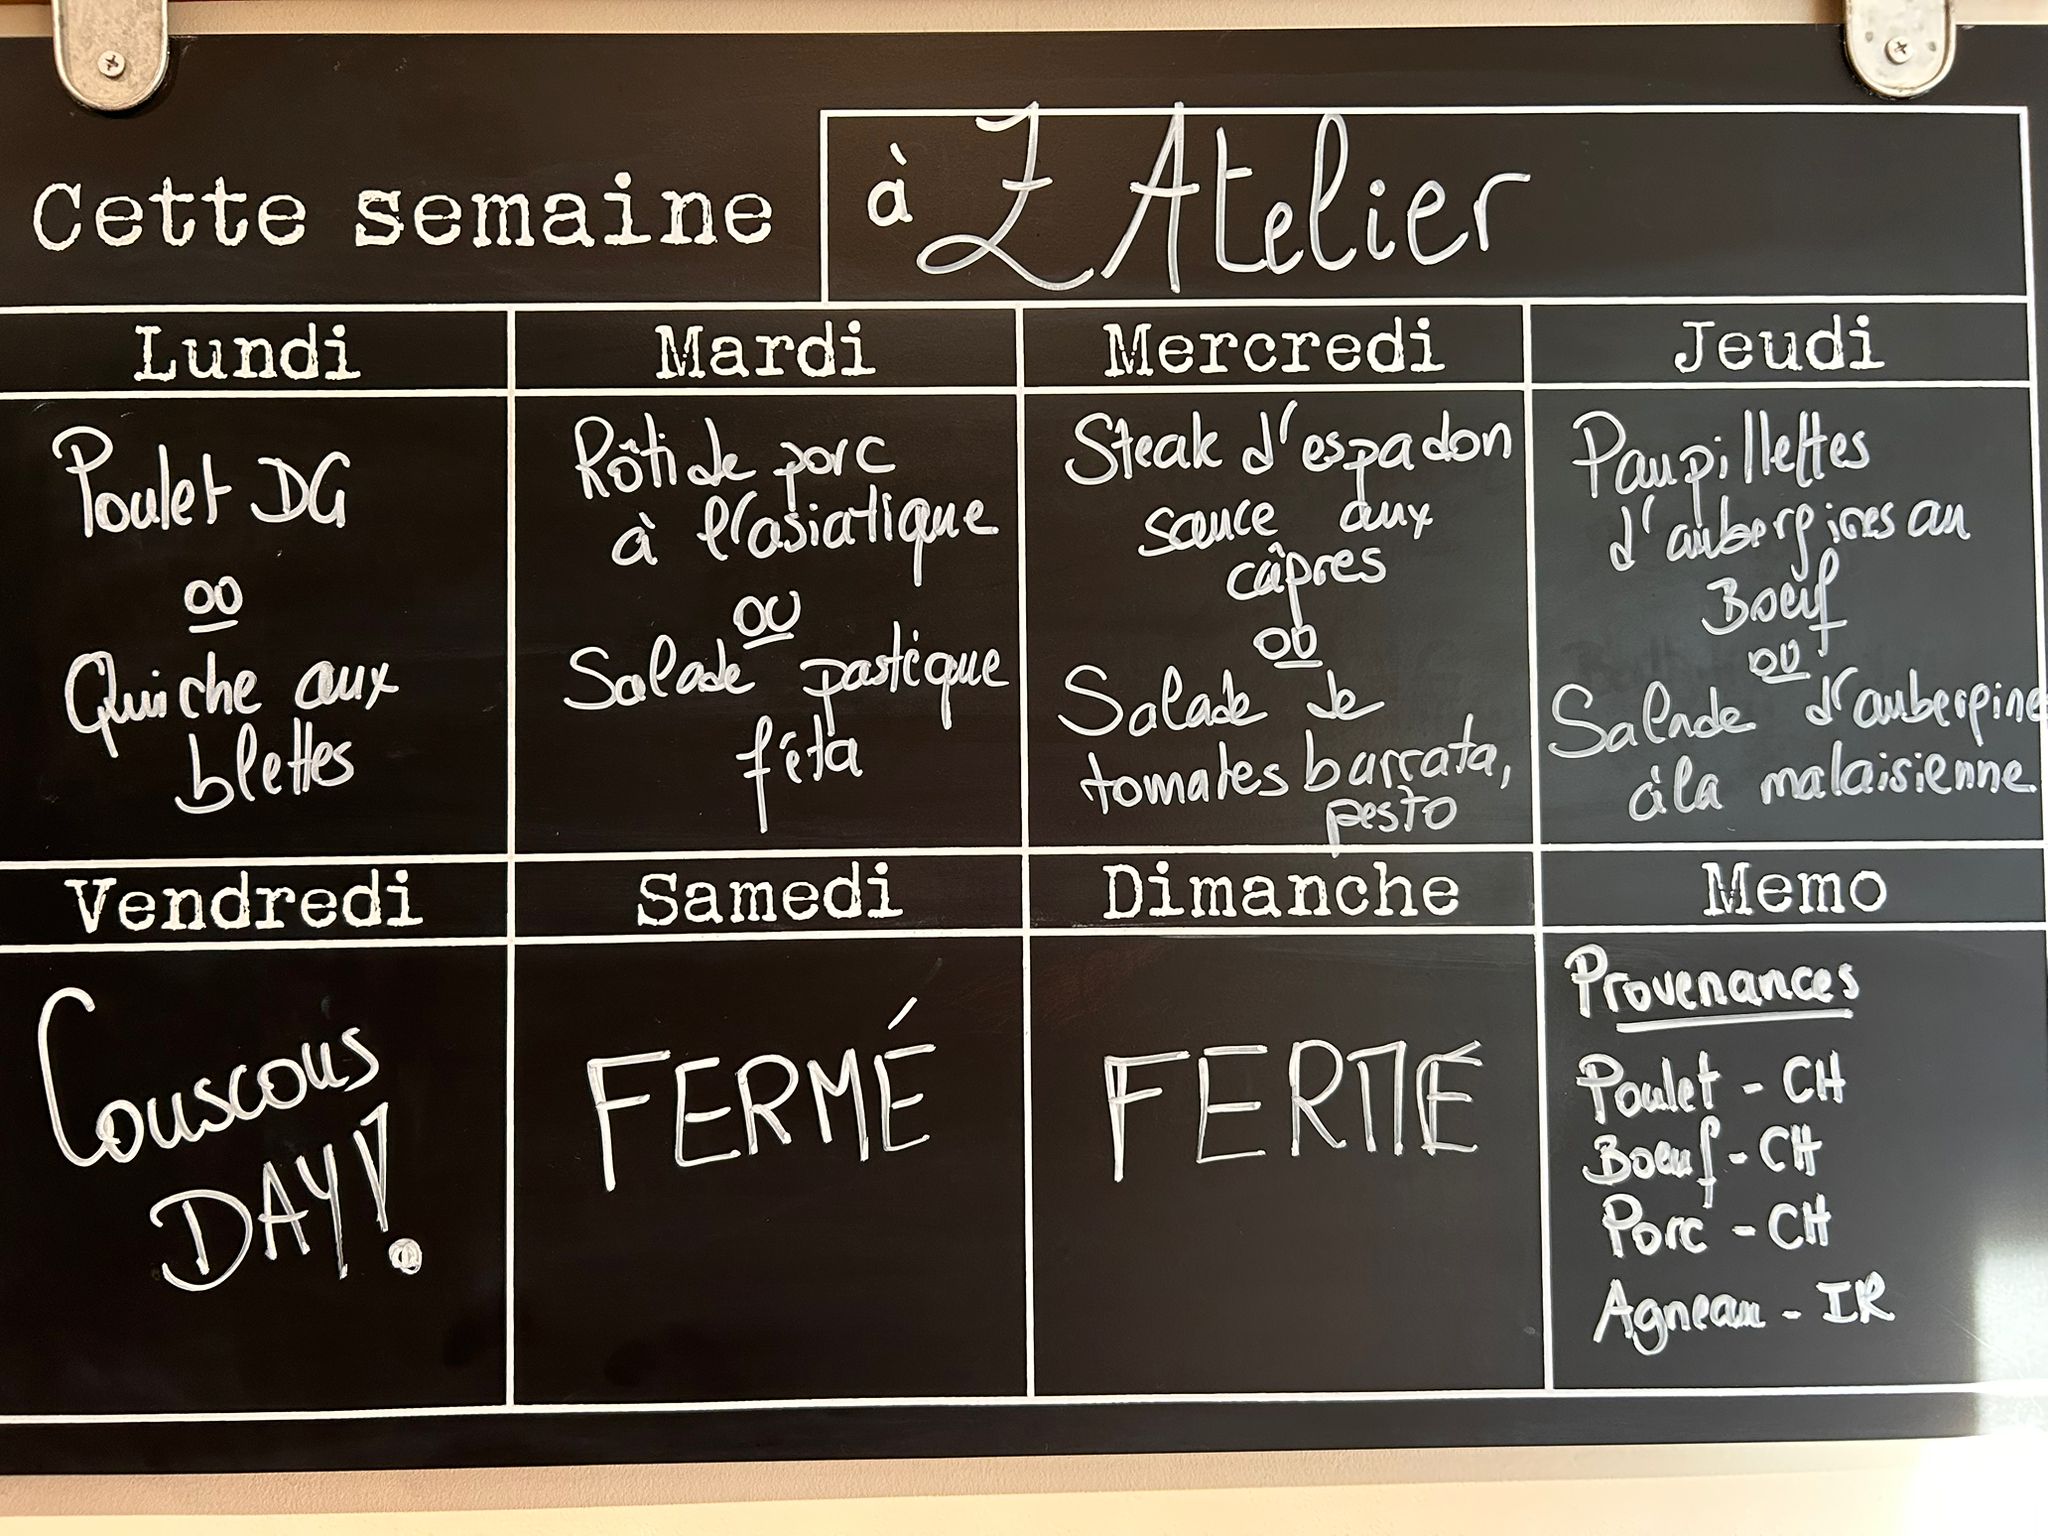 Cette semaine à L'Atelier
Lundi
Poulet DG
ou
Quiche aux
blettes
Mardi
Rôti de porc
à l'asiatique
ou
Salade pastèque
féta
Mercredi
Steak d'espadon
sauce aux
câpres
ou
Salade de
tomates burrata,
pesto
Jeudi
Paupillettes
d'aubergines au
Boeuf
ou
Salade d'aubergine
à la malaisienne
Vendredi
Couscous
DAY!
Samedi
FERMÉ
Dimanche
FERMÉ
Memo
Provenances
Poulet - CH
Boeuf - CH
Porc - CH
Agneau - IR